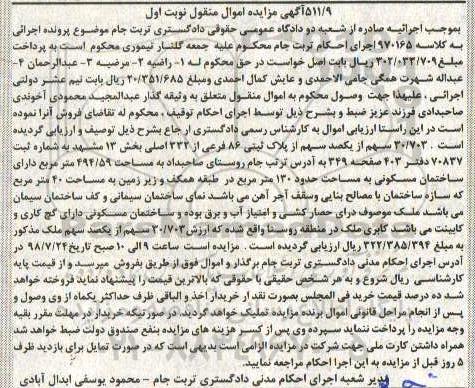 ۵۱۱/۹آگهی مزایده اموال منقول نوبت اول
بموجب اجرائیه صادره از شعبه دو دادگاه عمومی حقوقی دادگستری تربت جام موضوع پرونده اجرائی
به کلاسه ۹۷۰۱۶۵ اجرای احکام تربت جام محکوم علیه جمعه گلنار تیموری محکوم است به پرداخت
مبلغ ۳۰۲/۰۳۳/۷۰۹ ریال بابت اصل خواست در حق محکوم له ۱- راضیه ۲- مرضیه ۳- عبدالرحمان ۴-
عبداله شهرت همگی جامی الاحمدی و عایش کمال احمدی ومبلغ ۲۰/۳۵۱/۶۸۵ ریال بابت نیم عشر دولتی
اجرائی . علیهذا جهت وصول محکوم به اموال منقول متعلق به وثیقه گذار عبدالمجید محمودی آخوندی
صاحبدادی فرزند عزیز ضبط و بشرح ذیل توسط اجرای احکام توقیف ، محکوم له تقاضای فروش آنرا نموده
است در این راستا ارزیابی اموال به کارشناس رسمی دادگستری ارجاع بشرح ذیل توصیف و ارزیابی گردیده
است . ۳۰/۷۰۳ سهم از یکصد سهم از پلاک ثبتی ۸۶ فرعی از ۳۳۶ اصلی بخش ۱۳ مشهد به شماره ثبت
۷۰۸۳۷ دفتر ۴۰۳ صفحه ۳۴۹ به آدرس تربت جام روستای صاحبداد به مساحت ۴۹۴/۵۹ متر مربع دارای
ساختمان مسکونی به مساحت حدود ۱۳۰ متر مربع در طبقه همکف و زیر زمین به مساحت ۴۰ متر مربع
که سازه ساختمان با مصالح بنایی وسقف آجر آهن می باشد نمای ساختمان سیمانی و کف ساختمان سیمان
می باشد ملک موصوف درای حصار کشی و امتیاز آب و برق بوده و ساختمان مسکونی دارای گچ کاری و
کابینت می باشد کابری ملک در منطقه روستا واقع شده که ارزش ۳۰/۷۰۳ سهم از یکصد سهم ملک مذکور
به مبلغ ۳۲۲/۳۸۵/۳۹۴ ریال ارزیابی گردیده است . مزایده است ساعت ۹ الی ۱۰ صبح تاریخ ۹۸/۷/۲۴ در
آدرس اجرای احکام مدنی دادگستری تربت جام برگذار و اموال فوق از طریق بفروش میرسد و از قیمت پایه
کارشناسی ریال شروع و به هر شخص حقیقی یا حقوقی که بالاترین قیمت را پیشنهاد نماید فروخته خواهد
شد ده درصد قیمت خرید فی المجلس بصورت نقد از خریدار اخذ و الباقی ظرف حداکثر یکماه از وی وصول و
پس از انجام مراحل قانونی اموال برنده مزایده تملیک خواهد گردید.درصورتیکه خریدار در مهلت مقرر بقیه
وجه مزایده را پرداخت ننماید سپرده وی پس از کسر هزینه های مزایده بنفع صندوق دولت ضبط خواهد شد
همراه داشتن کارت ملی جهت شرکت در مزایده الزامی است بدیهی است که در صورت تمایل برای بازدید ظرف
۵ روز قبل از مزایده به این اجرا احکام مراجعه نمایید.
مدیر شعبه اجرای احکام مدنی دادگستری تربت جام - محمود یوسفی ابدال آبادی